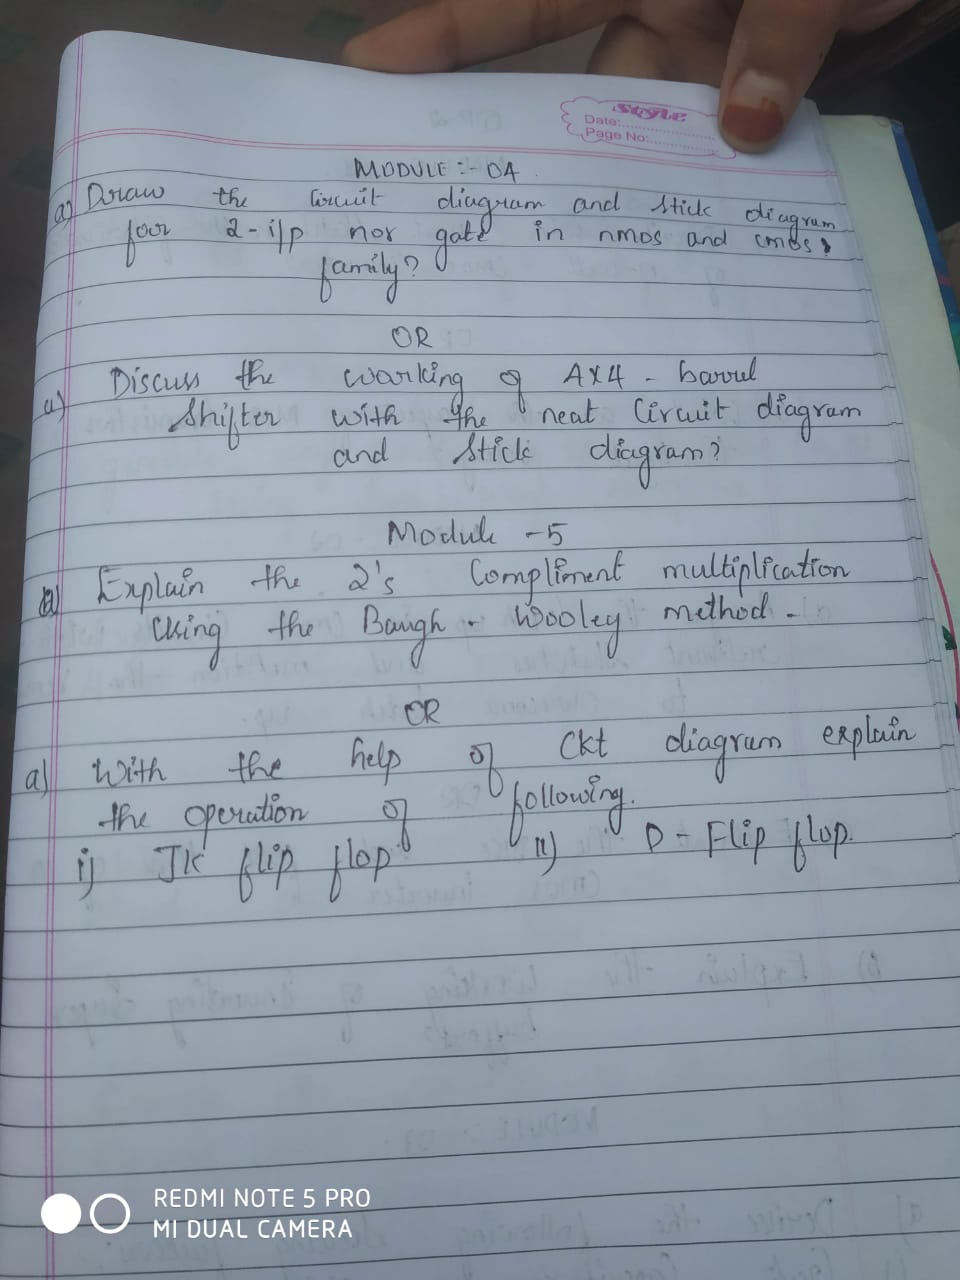 Style
Date:
Page No:
MODULE :- 04
a) Draw the Circuit diagram and stick diagram
foor 2-i/p nor gate in nmos and cmos,
family?
OR
a) Discuss the warking of 4x4 - barrel
Shifter with the neat Circuit diagram
and stick diagram?
Module - 5
a) Explain the 2's Compliment multiplication
Using the Baugh - Wooley method -
OR
a) With the help of Ckt diagram explain
the operation of following.
i) JK flip flop ii) D - Flip flop.
REDMI NOTE 5 PRO
MI DUAL CAMERA